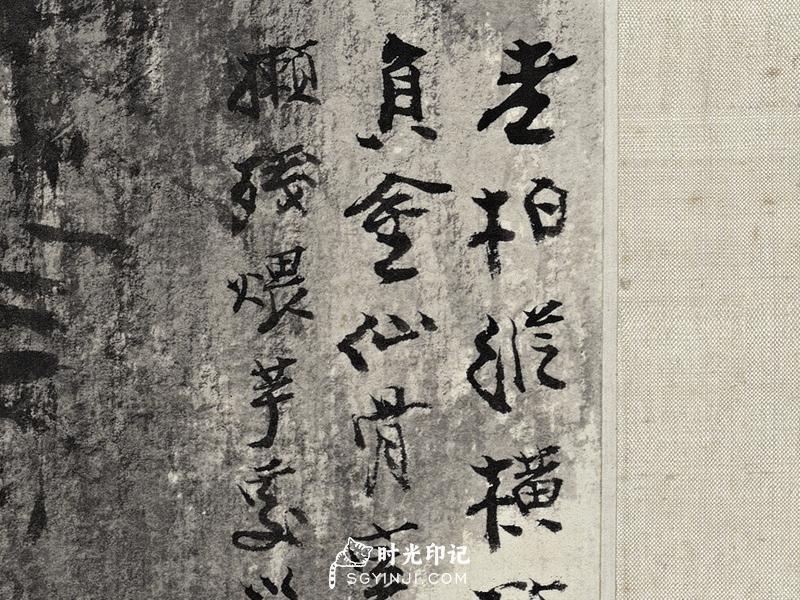 老柏縱橫
負金仙骨
懶殘煨芋
时光印记
SGYINJI.COM